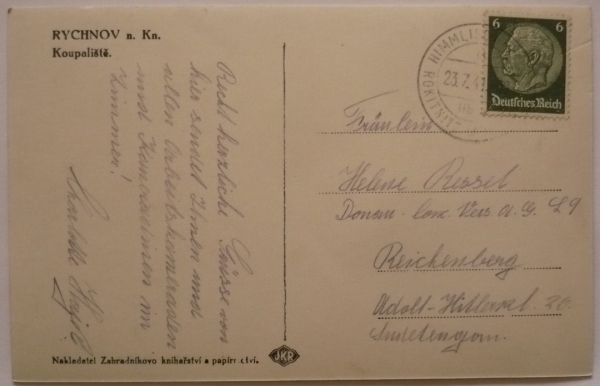 RYCHNOV n. Kn.
Koupaliště.
Recht herzliche Grüsse von
hier sendet Ihnen und
allen Arbeitskameraden
und Kameradinnen im
Zimmer!
Charlotte
Nakladatel Zahradníkovo knihařství a papír
JKR
HIMMLI
ROKITNITZ
23.7.41
6 6
Deutsches Reich
Fräulein
Helene Ressel
Donau-Con. Vers. A. G. L9
Reichenberg
Adolf-Hitlerpl. 20
Sudetengau.